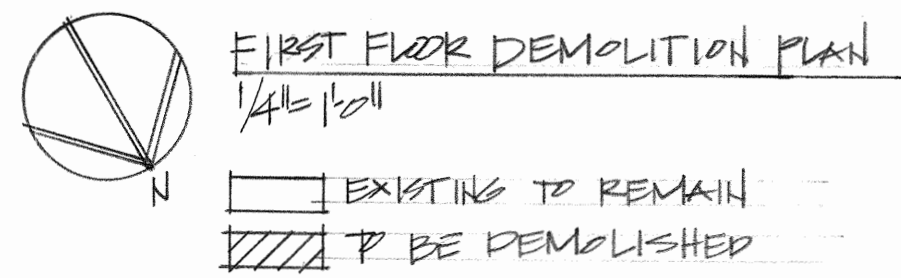 FIRST FLOOR DEMOLITION PLAN
1/4"=1'-0"
N
EXISTING TO REMAIN
TO BE DEMOLISHED